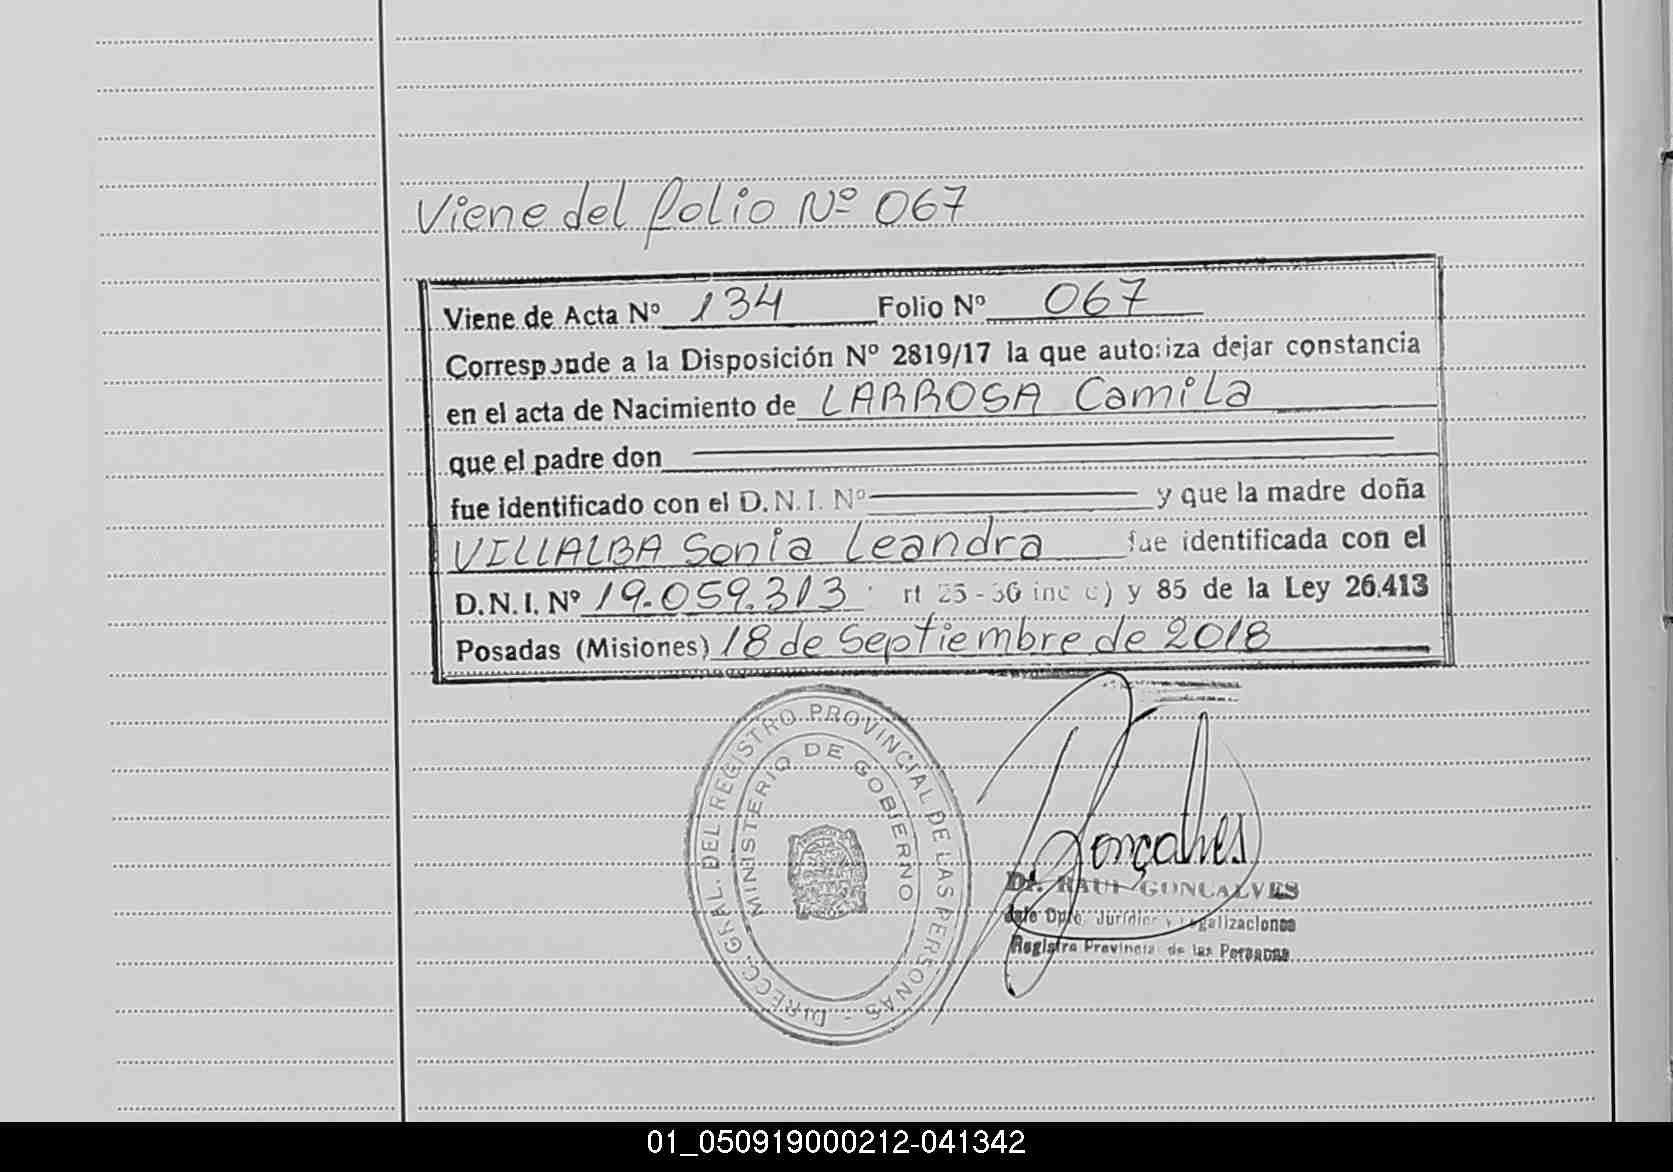 Viene del folio Nº 067
Viene de Acta Nº 134 Folio Nº 067
Corresponde a la Disposición Nº 2819/17 la que autoriza dejar constancia
en el acta de Nacimiento de LARROSA Camila
que el padre don
fue identificado con el D.N.I. Nº y que la madre doña
VILLALBA Sonia Leandra fue identificada con el
D.N.I. Nº 19.059.313 rt 25-36 inc c) y 85 de la Ley 26.413
Posadas (Misiones) 18 de Septiembre de 2018
DIRECC. GRAL. DEL REGISTRO PROVINCIAL DE LAS PERSONAS -
MINISTERIO DE GOBIERNO
Gonçalves
Dr. RAUL GONCALVES
Jefe Dpto. Jurídico y Legalizaciones
Registro Provincial de las Personas
01_050919000212-041342